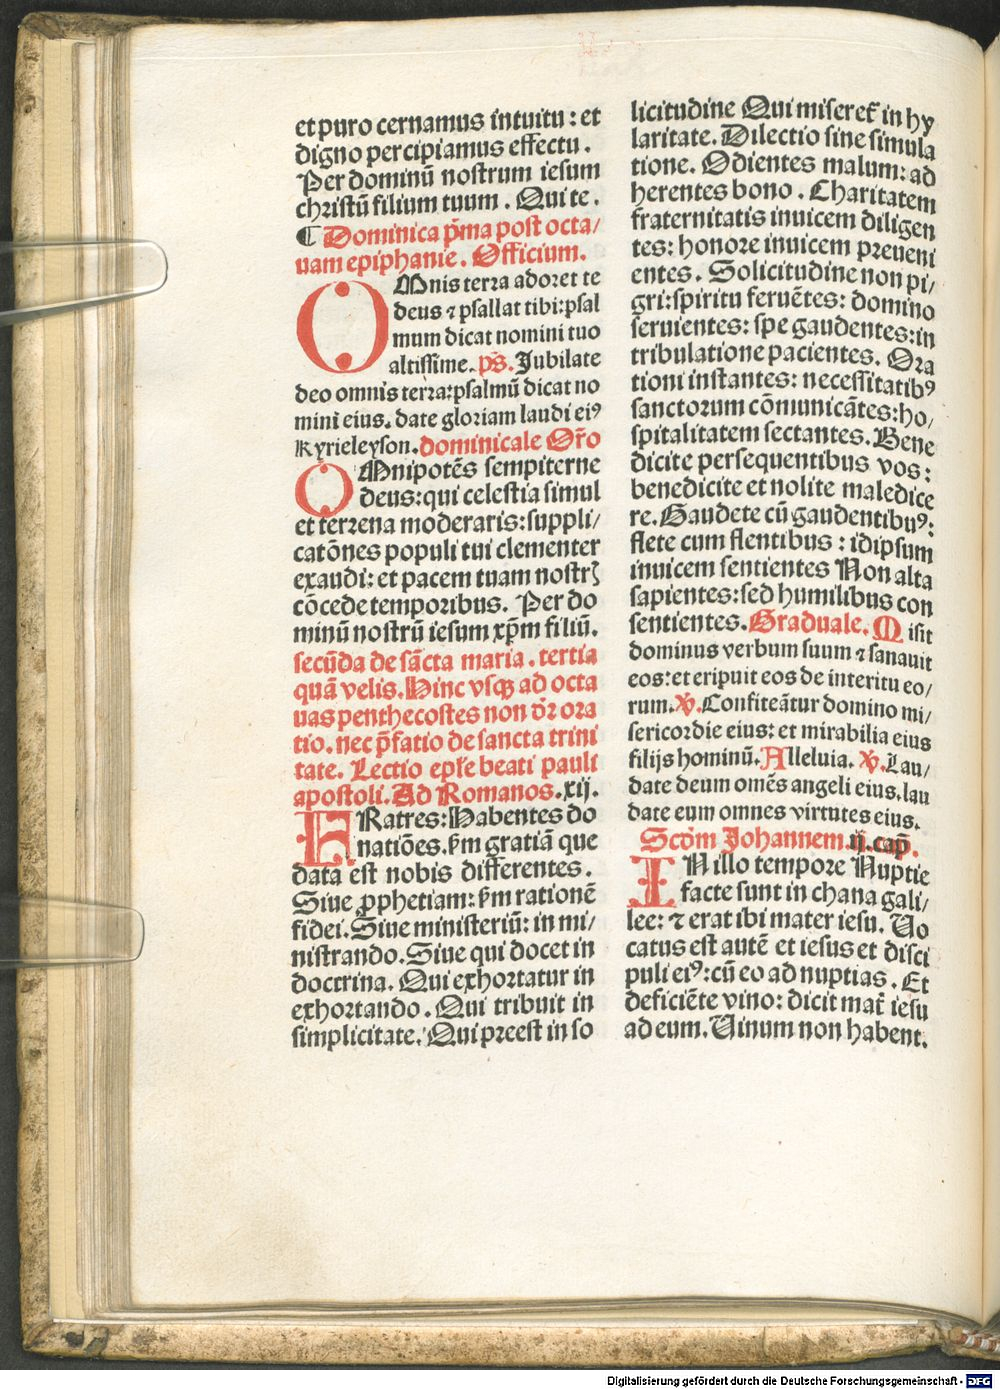 et puro cernamus intuitu : et
digno percipiamus effectu .
Per dominū nostrum iesum
christū filium tuum . Qui te .
¶ Dominica p̄ma post octa/
uam epiphanie . Officium .
OMnis terra adoret te
deus ⁊ psallat tibi: psal
mum dicat nomini tuo
altissime . ps̄. Jubilate
deo omnis terra: psalmū dicat no
mini eius . date gloriam laudi ei⁹
Kyrieleyson . dominicale Or̄o
OMnipotēs sempiterne
deus: qui celestia simul
et terrena moderaris: suppli/
catōnes populi tui clementer
exaudi: et pacem tuam nostrꝝ
cōcede temporibus . Per do
minū nostrū iesum xp̄m filiū.
secūda de sācta maria . tertia
quā velis. Hinc vsqꝫ ad octa
uas penthecostes non dr̄ ora
tio . nec p̄fatio de sancta trini
tate . Lectio ep̄le beati pauli
apostoli . Ad Romanos . xij.
FRatres: Habentes do
natiōes . s̄m gratiā que
data est nobis differentes .
Siue ꝓphetiam: s̄m rationē
fidei . Siue ministeriū: in mi/
nistrando . Siue qui docet in
doctrina . Qui exhortatur in
exhortando . Qui tribuit in
simplicitate . Qui preest in so
licitudine Qui miseret̄ in hy
laritate . Dilectio sine simula
tione . Odientes malum: ad
herentes bono . Charitatem
fraternitatis inuicem diligen
tes: honore inuicem preueni
entes . Solicitudine non pi/
gri: spiritu feruētes: domino
seruientes: spe gaudentes: in
tribulatione pacientes . Ora
tioni instantes: necessitatib⁹
sanctorum cōmunicātes: ho/
spitalitatem sectantes . Bene
dicite persequentibus vos:
benedicite et nolite maledice
re . Gaudete cū gaudentibu⁹:
flete cum flentibus : idipsum
inuicem sentientes Non alta
sapientes: sed humilibus con
sentientes . Graduale . Misit
dominus verbum suum ⁊ sanauit
eos: et eripuit eos de interitu eo/
rum . ℣. Confiteātur domino mi/
sericordie eius: et mirabilia eius
filijs hominū. Alleluia . ℣. Lau/
date deum omēs angeli eius . lau
date eum omnes virtutes eius .
Scd̄m Johannem . ij. cap̄.
IN illo tempore Nuptie
facte sunt in chana gali/
lee: ⁊ erat ibi mater iesu . Uo
catus est autē et iesus et disci
puli ei⁹: cū eo ad nuptias . Et
deficiēte vino: dicit mat̄ iesu
ad eum . Uinum non habent .
Digitalisierung gefördert durch die Deutsche Forschungsgemeinschaft - DFG